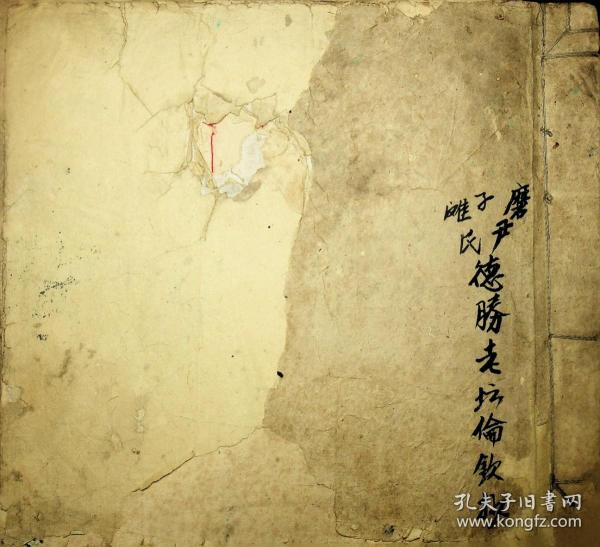 磨尹德勝老坛倫欽
子氏
雎
孔夫子旧书网
www.kongfz.com